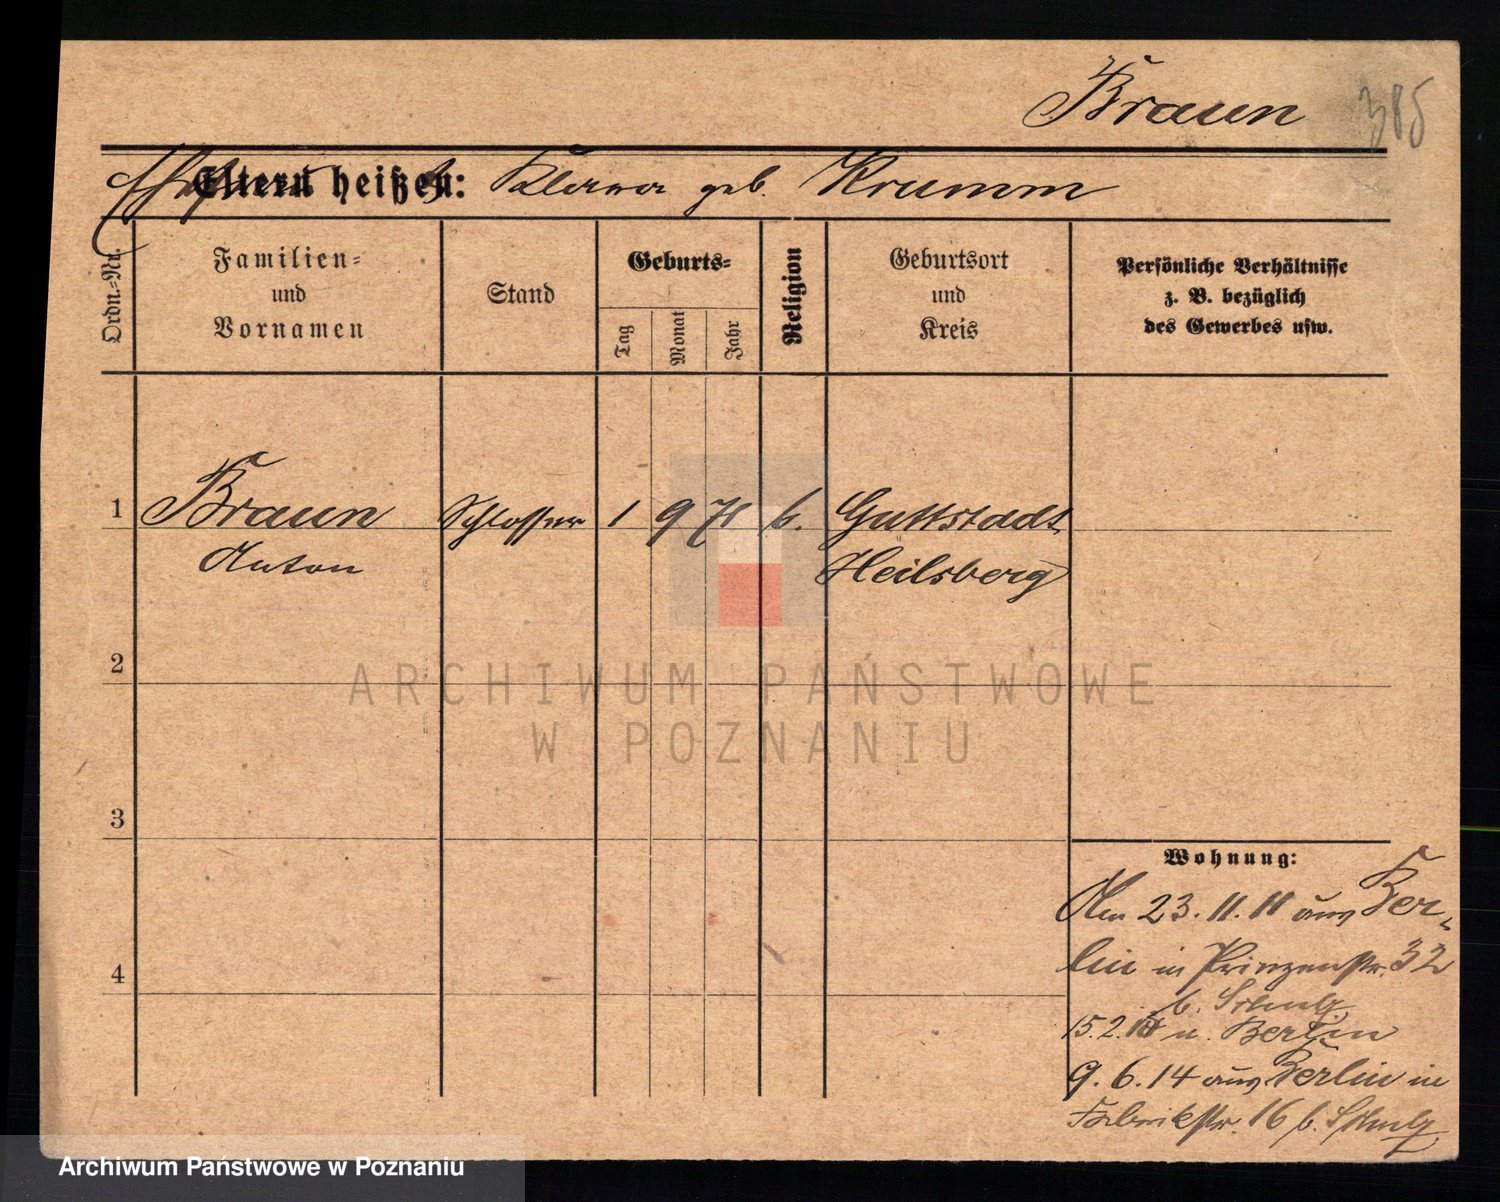 Braun
385
Eltern heißen: geb. Krumm
Ordn.-Nr.
Familien-
und
Vornamen
Stand
Geburts-
Tag
Monat
Jahr
Religion
Geburtsort
und
Kreis
Persönliche Verhältnisse
z. B. bezüglich
des Gewerbes usw.
1 Braun Schlosser 1 9 71 Guttstadt
Anton Heilsberg
2
ARCHIWUM PAŃSTWOWE
W POZNANIU
3
Wohnung:
Am 23.11.11 aus Ber-
lin in Prinzenstr. 32
4
b. Schulz
15.2. n. Berlin
9.6.14 aus Berlin in
Fabrikstr. 16 b. Schulz
Archiwum Państwowe w Poznaniu